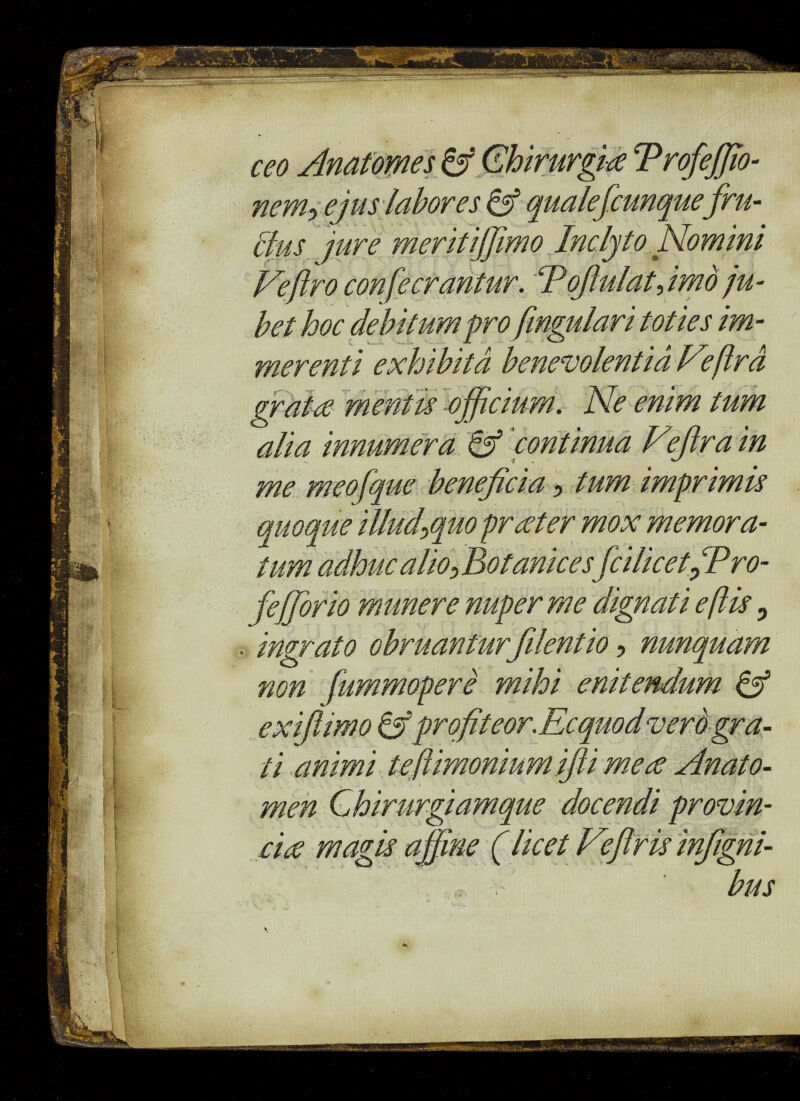 ceo Anatomes & Chirurgiæ Professio-
nem, ejus labores & qualescunque fru-
ctus jure meritissimo Inclyto Nomini
Vestro consecrantur. Postulat, imò ju-
bet hoc debitum pro singulari toties im-
merenti exhibitâ benevolentiâ Vestrâ
gratæ mentis officium. Ne enim tum
alia innumera & continua Vestra in
me meosque beneficia, tum imprimis
quoque illud, quo præter mox memora-
tum adhuc alio, Botanices scilicet, Pro-
fessorio munere nuper me dignati estis,
ingrato obruantur silentio, nunquam
non summoperè mihi enitendum &
existimo & profiteor. Ecquod verò gra-
ti animi testimonium isti meæ Anato-
men Chirurgiamque docendi provin-
ciæ magis affine (licet Vestris insigni-
bus